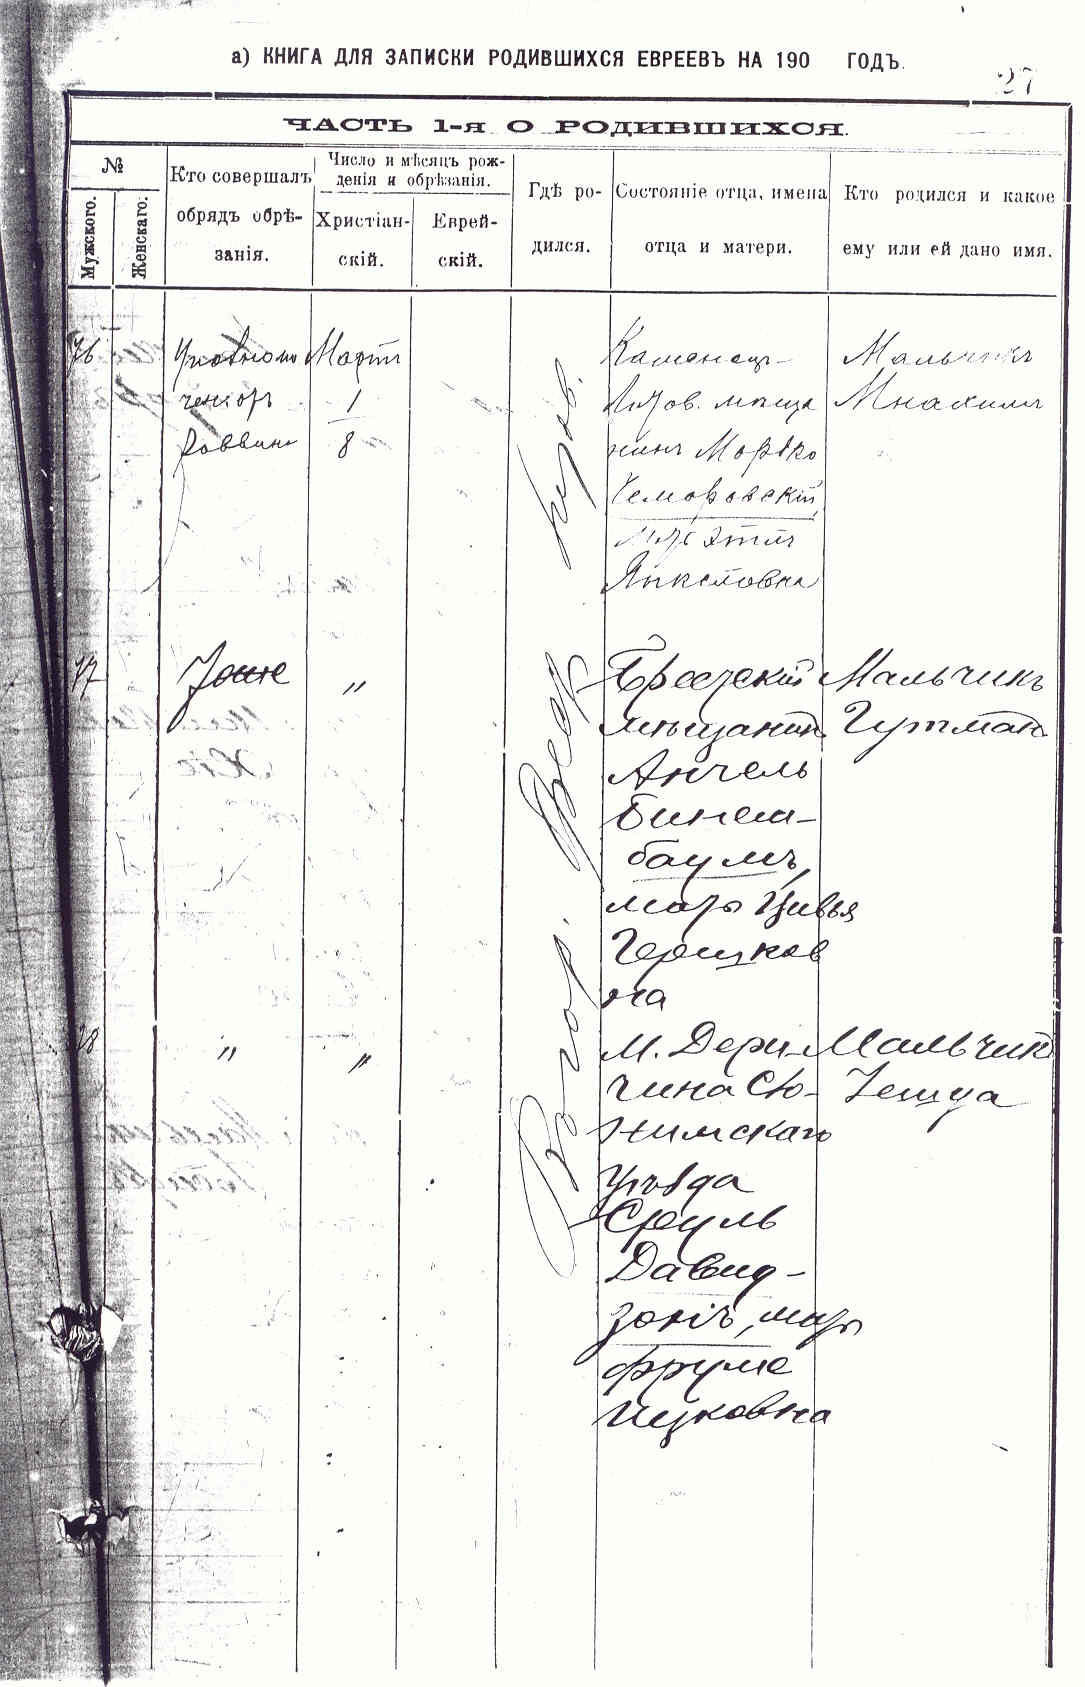 а) КНИГА ДЛЯ ЗАПИСКИ РОДИВШИХСЯ ЕВРЕЕВЪ НА 190 ГОДЪ.
27
ЧАСТЬ 1-я О РОДИВШИХСЯ.
№
Мужского.
Женскаго.
Кто совершалъ
обрядъ обрѣ-
занія.
Число и мѣсяцъ рож-
денія и обрѣзанія.
Христіан-
скій.
Еврей-
скій.
Гдѣ ро-
дился.
Состояніе отца, имена
отца и матери.
Кто родился и какое
ему или ей дано имя.
76
Мартъ
1
8
Каменецъ-
Литов. мѣща
нинъ Мордко
мать Этля
Янкелевна
Мальчикъ
Мнахимъ
77
Тоже
"
Брестскій
мѣщанинъ
Анчель
Бинем-
баумъ,
мать Цивья
Гершков
на
Мальчикъ
Гутман
"
"
м. Дери-
чина Сло-
нимскаго
уѣзда
Сруль
Давид-
зонъ, мать
Фруме
Ицковна
Мальчикъ